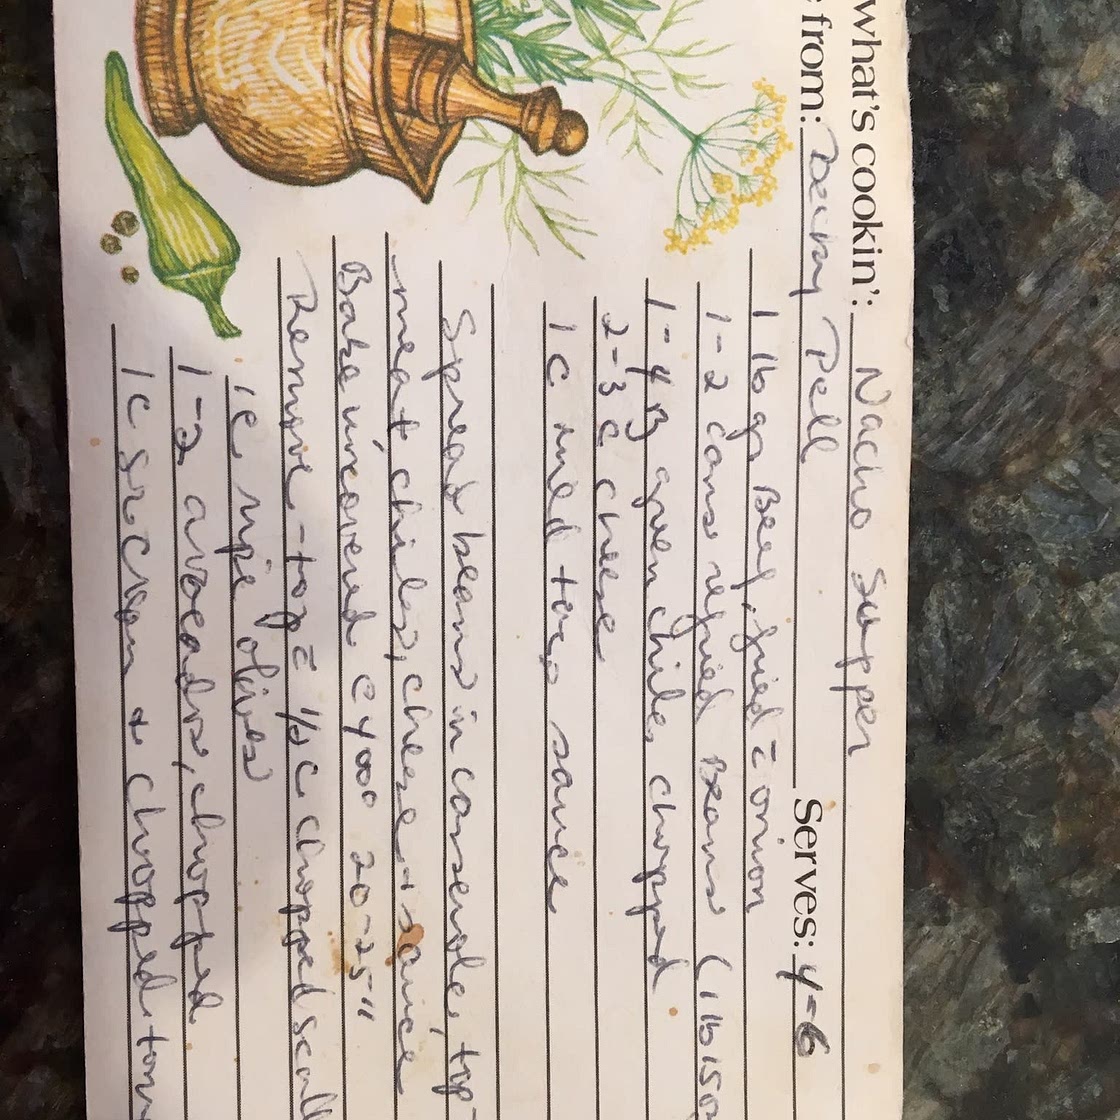 what's cooking': Nacho Supper
from: Becky Pell Serves: 4-6
1 lb gr Beef, fried c̄ onion
1-2 cans refried Beans (1 lb 15oz
1-4 oz green chiles chopped
2-3 c cheese
1 c mild taco sauce
Spread beans in casserole, top
meat, chiles, cheese + sauce
Bake uncovered @ 400° 20-25"
Remove - top c̄ 1/2 c chopped scall
1c ripe olives
1-2 avocados, chopped
1c sr cream & chopped tom